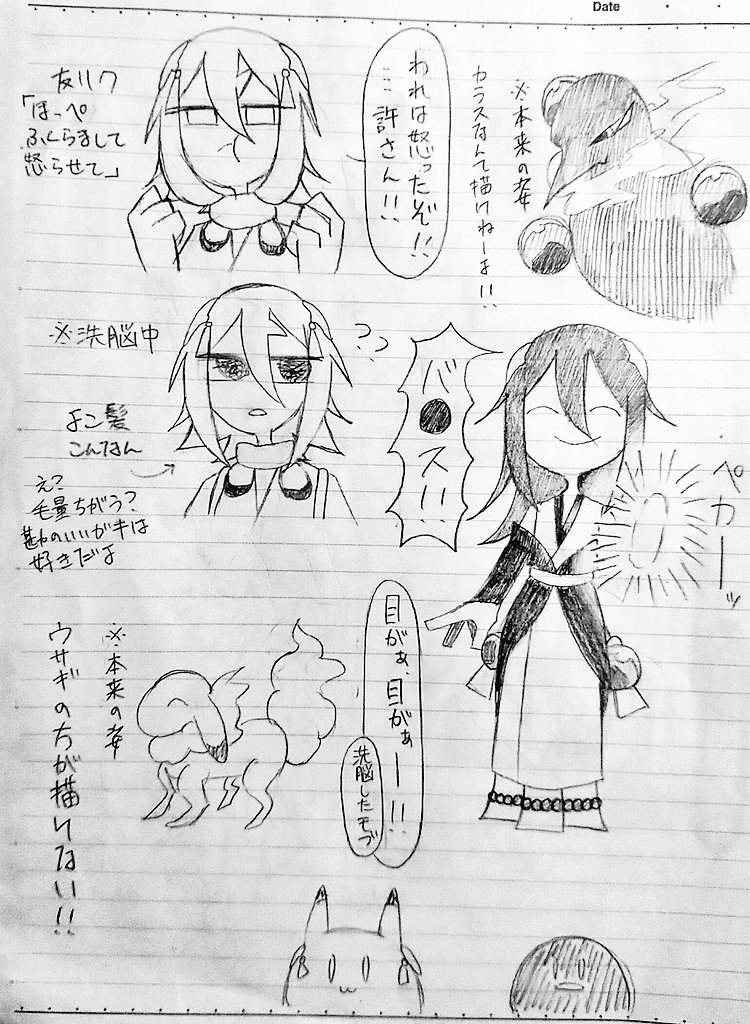 Date
友リク
「ほっぺ
ふくらまして
怒らせて」
われは怒ったぞ!!
…許さん!!
※本来の姿
カラスなんて描けねーよ!!
※洗脳中
??
よこ髪
こんなん
え?
毛量ちがう?
勘のいいガキは
好きだよ
バ●ス!!
ペカーッ
目がぁ、目がぁー!!
洗脳したモブ
※本来の姿
ウサギの方が描けない!!